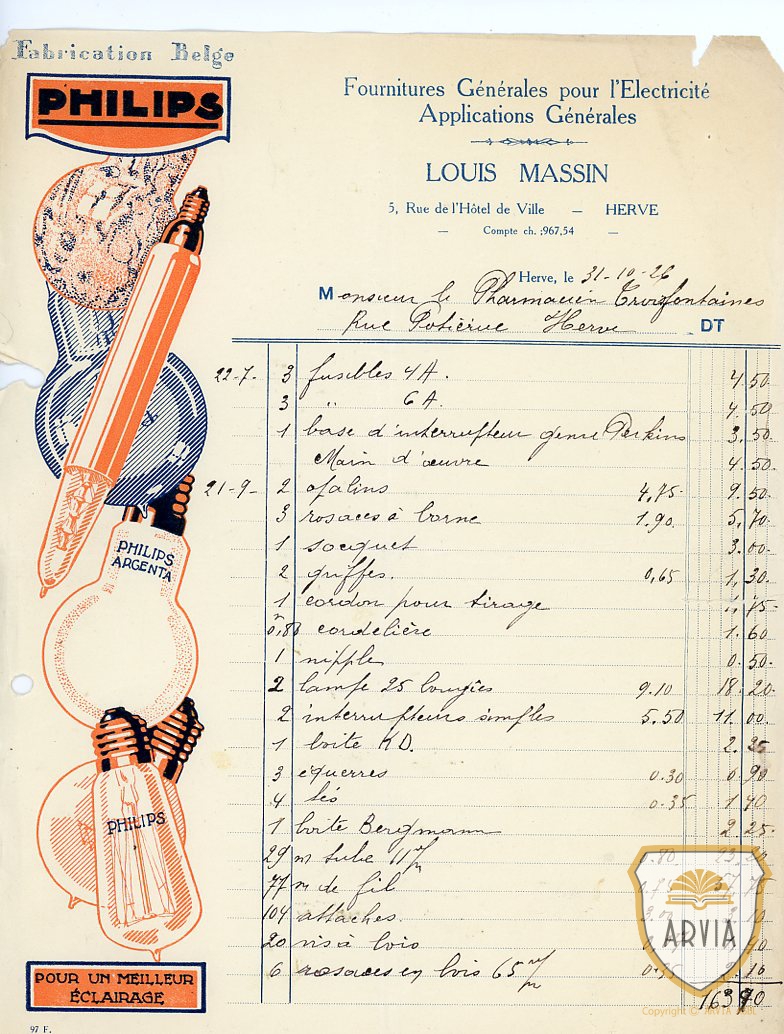 Fabrication Belge
PHILIPS
Fournitures Générales pour l'Electricité
Applications Générales
LOUIS MASSIN
5, Rue de l'Hôtel de Ville — HERVE
— Compte ch. :967,54 —
Herve, le 31-10-26
Monsieur le Pharmacien Troisfontaines
Rue Potiérue Herve DT
22-7- 3 fusibles 4 A. 4.50
3 " 6 A 4.50
1 base d'interrupteur genre Perkins 3.50
Main d'œuvre 4.50
21-9- 2 opalins 4,75 9.50
3 rosaces à borne 1.90 5,70
1 socquet 3.00
2 griffes. 0,65 1,30
1 cordon pour tirage 75
0,80 cordelière 1.60
1 nipple 0.50
2 lampe 25 bougies 9.10 18.20
2 interrupteurs simples 5.50 11.00
1 boite KD. 2.25
3 équerres 0.30 0.90
4 tés 0.35 1,40
1 boite Bergmann 2.25
29 m tube 11 m/m 0.80 23,20
77 m de fil
104 attaches. 3.00
20 vis à bois
6 rosaces en bois 65 m/m 0.35 2.10
PHILIPS
ARGENTA
PHILIPS
POUR UN MEILLEUR
ÉCLAIRAGE
97 F.
ARVIA
Copyright © ARVIA ASBL